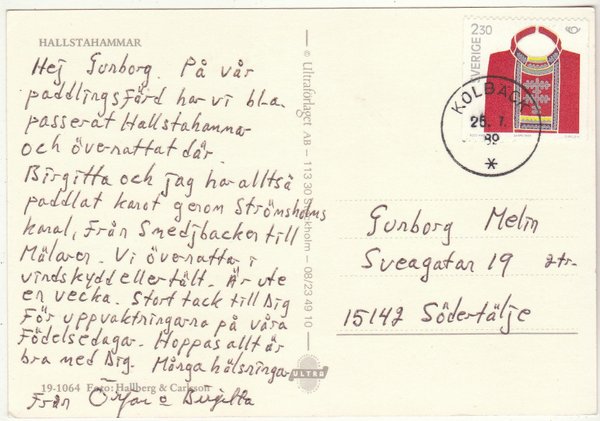 HALLSTAHAMMAR
Hej Gunborg. På vår
paddlingsfärd har vi bl.a.
passerat Hallstahammar
och övernattat där.
Birgitta och jag har alltså
paddlat kanot genom Strömsholms
kanal, Från Smedjbacken till
Mälaren. Vi övernattar i
vindskydd eller tält. Är ute
en vecka. Stort tack till Dig
För uppvaktningarna på våra
Födelsedagar. Hoppas allt är
bra med Dig. Många hälsningar
19-1064 Foto: Hallberg & Carlsson
Från Örjan o Birgitta
© Ultraförlaget AB – 113 30 Stockholm – 08/23 49 10
ULTRA
2.30
SVERIGE
KOLBÄCK
26. 7.
89
Gunborg Melin
Sveagatan 19 2 tr.
15142 Södertälje